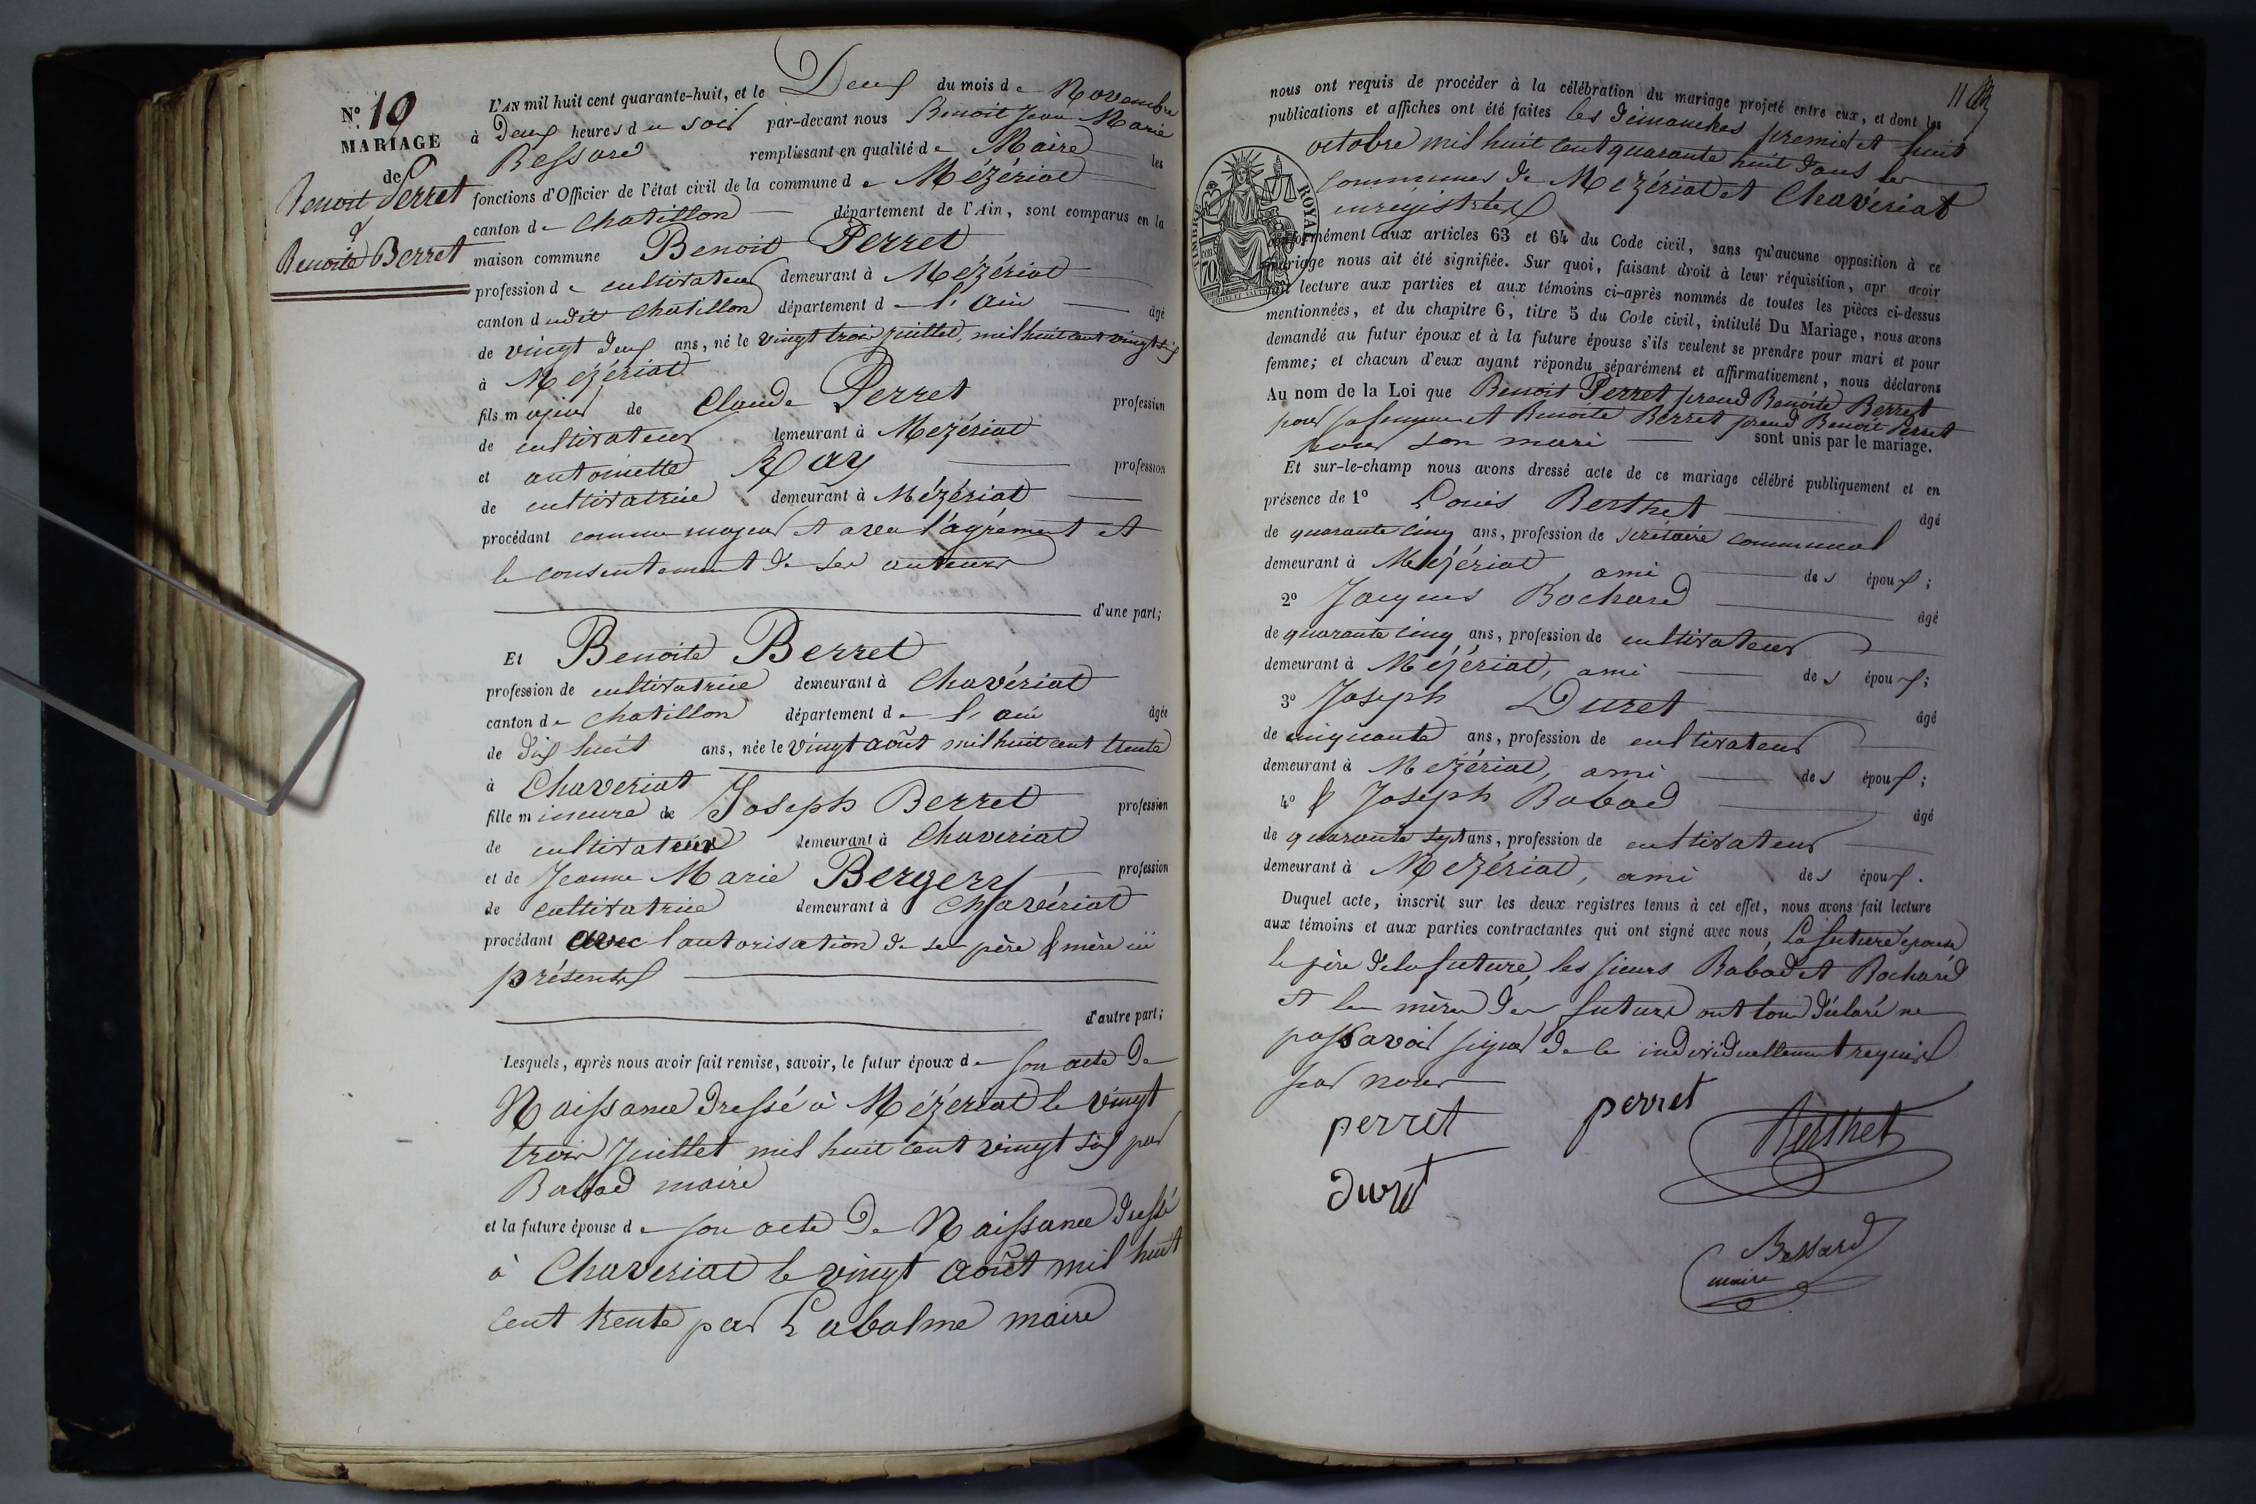 N° 19
MARIAGE
de
Benoit Perret
&
Benoite Berret
L'AN mil huit cent quarante-huit, et le Deux du mois de Novembre
à Deux heures du soir par-devant nous Benoit Jean Marie
Bessard remplissant en qualité de Maire les
fonctions d'Officier de l'état civil de la commune de Mézériat
canton de Chatillon département de l'Ain, sont comparus en la
maison commune Benoit Perret
profession de cultivateur demeurant à Mézériat
canton dudit Chatillon département de l'ain âgé
de vingt deux ans, né le vingt trois juillet, mil huit cent vingt six
à Mézériat
fils majeur de Claude Perret profession
de cultivateur demeurant à Mézériat
et antoinette Ray profession
de cultivatrice demeurant à Mézériat
procédant comme majeur et avec l'agrément et
le consentement de ses auteurs
d'une part;
Et Benoite Berret
profession de cultivatrice demeurant à Chavériat
canton de Chatillon département de l'ain âgée
de dix huit ans, née le vingt août mil huit cent trente
à Chaveriat
fille mineure de Joseph Berret profession
de cultivateur demeurant à Chaveriat
et de Jeanne Marie Bergery profession
de cultivatrice demeurant à Chavériat
procédant avec l'autorisation de ses père & mère ici
présents
d'autre part;
Lesquels, après nous avoir fait remise, savoir, le futur époux de son acte de
Naissance dressé à Mézériat le vingt
trois Juillet mil huit cent vingt six par
Babad maire
et la future épouse de son acte de Naissance dressé
à Chaveriat le vingt août mil huit
cent trente par Labalme maire
11
nous ont requis de procéder à la célébration du mariage projeté entre eux, et dont les
publications et affiches ont été faites les dimanches premier et huit
octobre mil huit cent quarante huit dans les
communes de Mézériat et Chavériat
enregistrées
TIMBRE ROYAL
70
conformément aux articles 63 et 64 du Code civil, sans qu'aucune opposition à ce
mariage nous ait été signifiée. Sur quoi, faisant droit à leur réquisition, apr avoir
fait lecture aux parties et aux témoins ci-après nommés de toutes les pièces ci-dessus
mentionnées, et du chapitre 6, titre 5 du Code civil, intitulé Du Mariage, nous avons
demandé au futur époux et à la future épouse s'ils veulent se prendre pour mari et pour
femme; et chacun d'eux ayant répondu séparément et affirmativement, nous déclarons
Au nom de la Loi que Benoit Perret prend Benoite Berret
pour sa femme et Benoite Berret prend Benoit Perret
pour son mari sont unis par le mariage.
Et sur-le-champ nous avons dressé acte de ce mariage célébré publiquement et en
présence de 1° Louis Berthet âgé
de quarante cinq ans, profession de secrétaire communal
demeurant à Mézériat, ami des époux;
2° Jacques Bochard âgé
de quarante cinq ans, profession de cultivateur
demeurant à Mézériat, ami des époux;
3° Joseph Duret âgé
de cinquante ans, profession de cultivateur
demeurant à Mézériat, ami des époux;
4° & Joseph Babad âgé
de quarante sept ans, profession de cultivateur
demeurant à Mézériat, ami des époux.
Duquel acte, inscrit sur les deux registres tenus à cet effet, nous avons fait lecture
aux témoins et aux parties contractantes qui ont signé avec nous, La future épouse
le père de la future, les sieurs Babad et Bochard
et les mères des futurs ont tous déclaré ne
pas savoir signer de ce individuellement requis
par nous
perret perret Berthet
duret
Bessard
maire